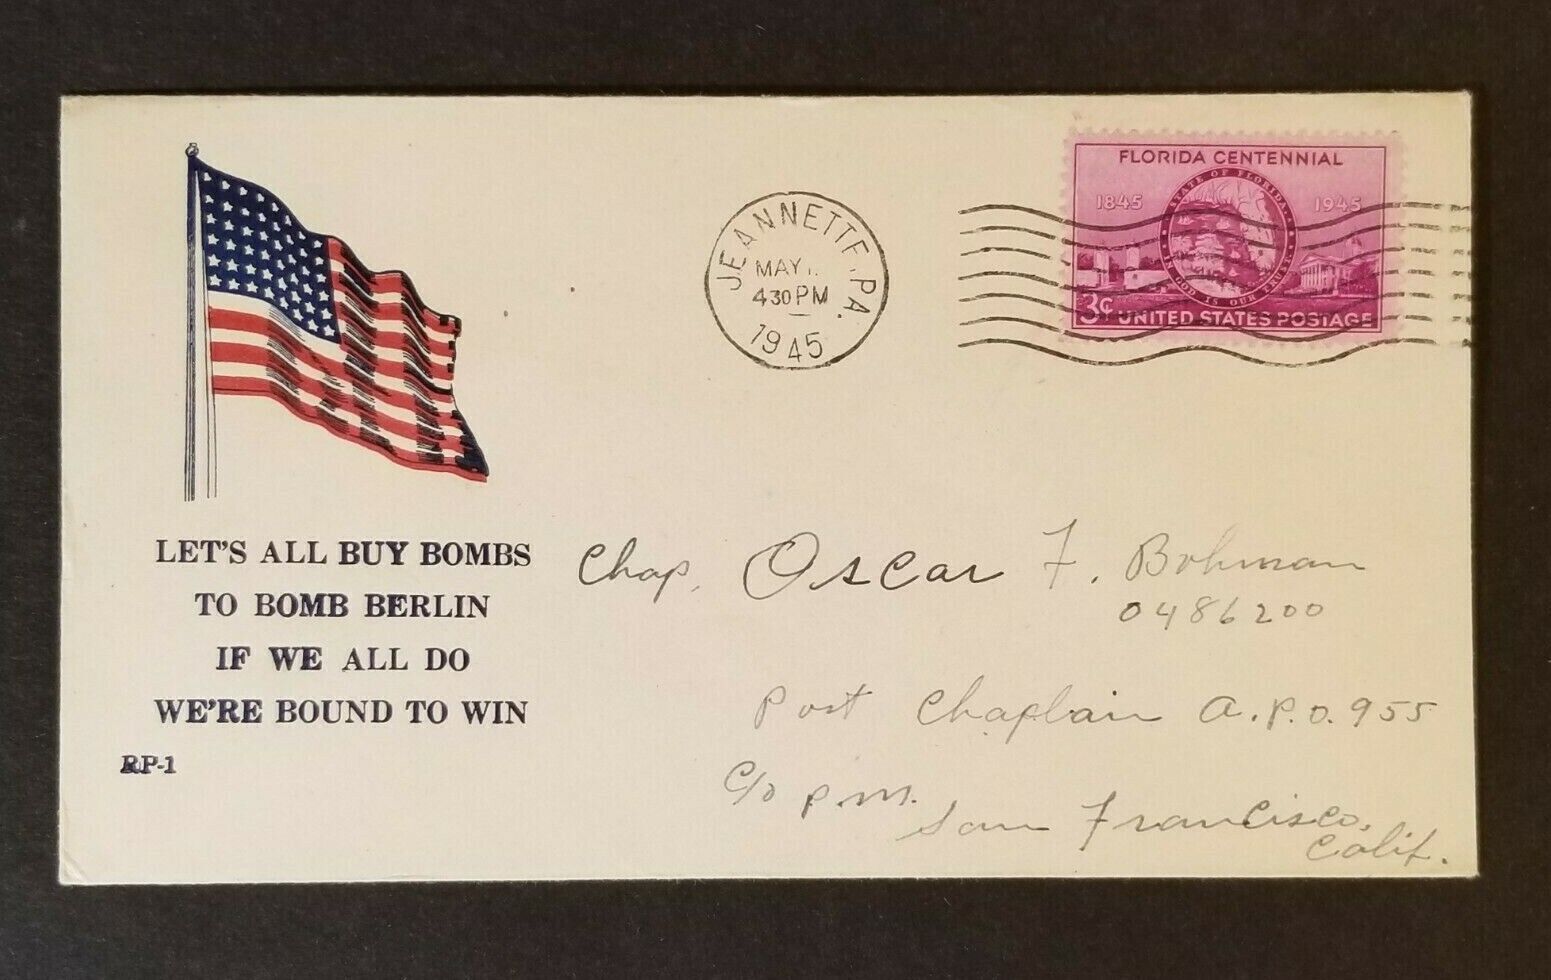 JEANNETTE, PA.
MAY
4 30 PM
1945
FLORIDA CENTENNIAL
1845 1945
STATE OF FLORIDA
IN GOD IS OUR TRUST
3¢ UNITED STATES POSTAGE
LET'S ALL BUY BOMBS
TO BOMB BERLIN
IF WE ALL DO
WE'RE BOUND TO WIN
RP-1
Chap. Oscar F. Bohman
0486200
Post Chaplain A.P.O. 955
c/o P.M.
San Francisco,
Calif.